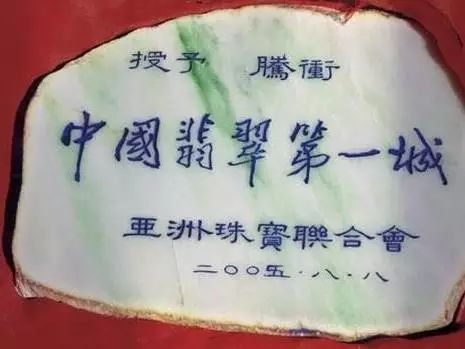 授予 騰衝
中國翡翠第一城
亞洲珠寶聯合會
二〇〇五.八.八